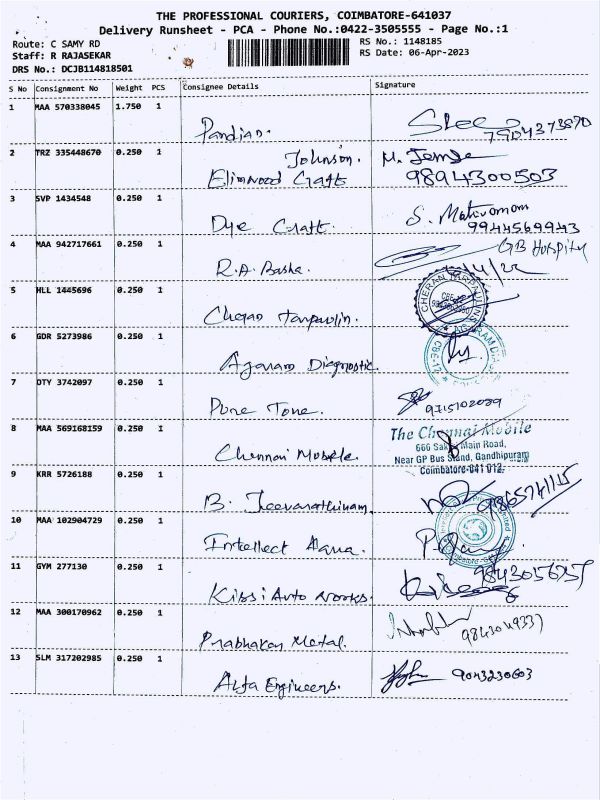 THE PROFESSIONAL COURIERS, COIMBATORE-641037
Delivery Runsheet - PCA - Phone No.:0422-3505555 - Page No.:1
Route: C SAMY RD
RS No.: 1148185
Staff: R RAJASEKAR
RS Date: 06-Apr-2023
DRS No.: DCJB114818501
S No Consignment No Weight PCS Consignee Details Signature
1 MAA 570338045 1.750 1
Pandian. 7904373870
2 TRZ 335448670 0.250 1
Johnson.
Elimwood Craft 9894300503
3 SVP 1434548 0.250 1
Dye Craft. S. Mathivanan
9944569943
4 MAA 942717661 0.250 1 GB Hospity
R.A. Basha.
5 HLL 1445696 0.250 1 CHERAN TARPAULINS
Cheran Tarpaulin.
6 GDR 5273986 0.250 1
Aganam Diagnostic.
7 DTY 3742097 0.250 1
Pure Tone. 9715102089
8 MAA 569168159 0.250 1 The Chennai Mobile
Main Road,
Near GP Bus Stand, Gandhipuram
Chennai Mobile. Coimbatore-641 012.
9 KRR 5726188 0.250 1
B. Jeevarathinam. 9865741115
10 MAA 102904729 0.250 1
Intellect
11 GYM 277130 0.250 1
Auto Works.
12 MAA 300170962 0.250 1
Prabhakar Metal. 9843049337
13 SLM 317202985 0.250 1
Alfa Engineers. 9043230603